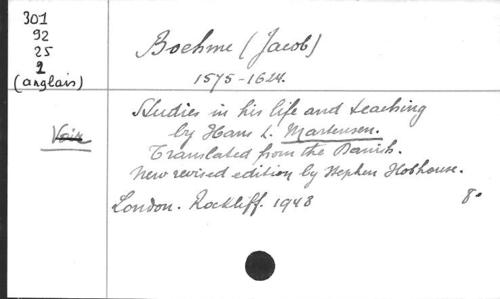 301
92
25
2
(anglais)
Boehme (Jacob)
1575-1624.
Voir
Studies in his life and teaching
by Hans L. Martensen.
Translated from the Danish.
New revised edition by Stephen Hobhouse.
London. Rockliff. 1948 8°